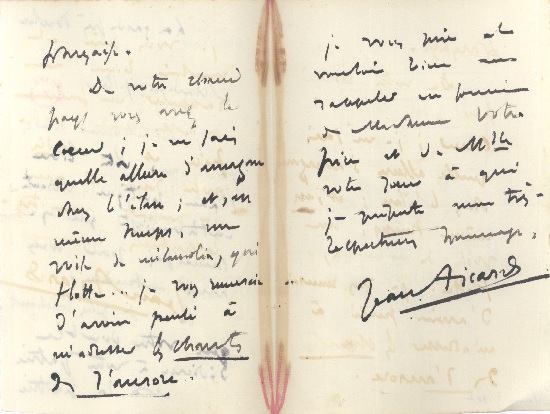 française.
De votre chaud
pays vous avez le
coeur ; je ne sais
quelle allure d'amazone
chez l' ; et, en
même temps, un
voile de mélancolie, qui
flotte... je vous remercie
d'avoir pensé à
m'adresser les chants
de l'aurore.
je vous prie de
vouloir bien me
rappeler au souvenir
de Madame votre
et de Mlle
votre soeur à qui
je présente mon très
respectueux hommage.
Jean Aicard